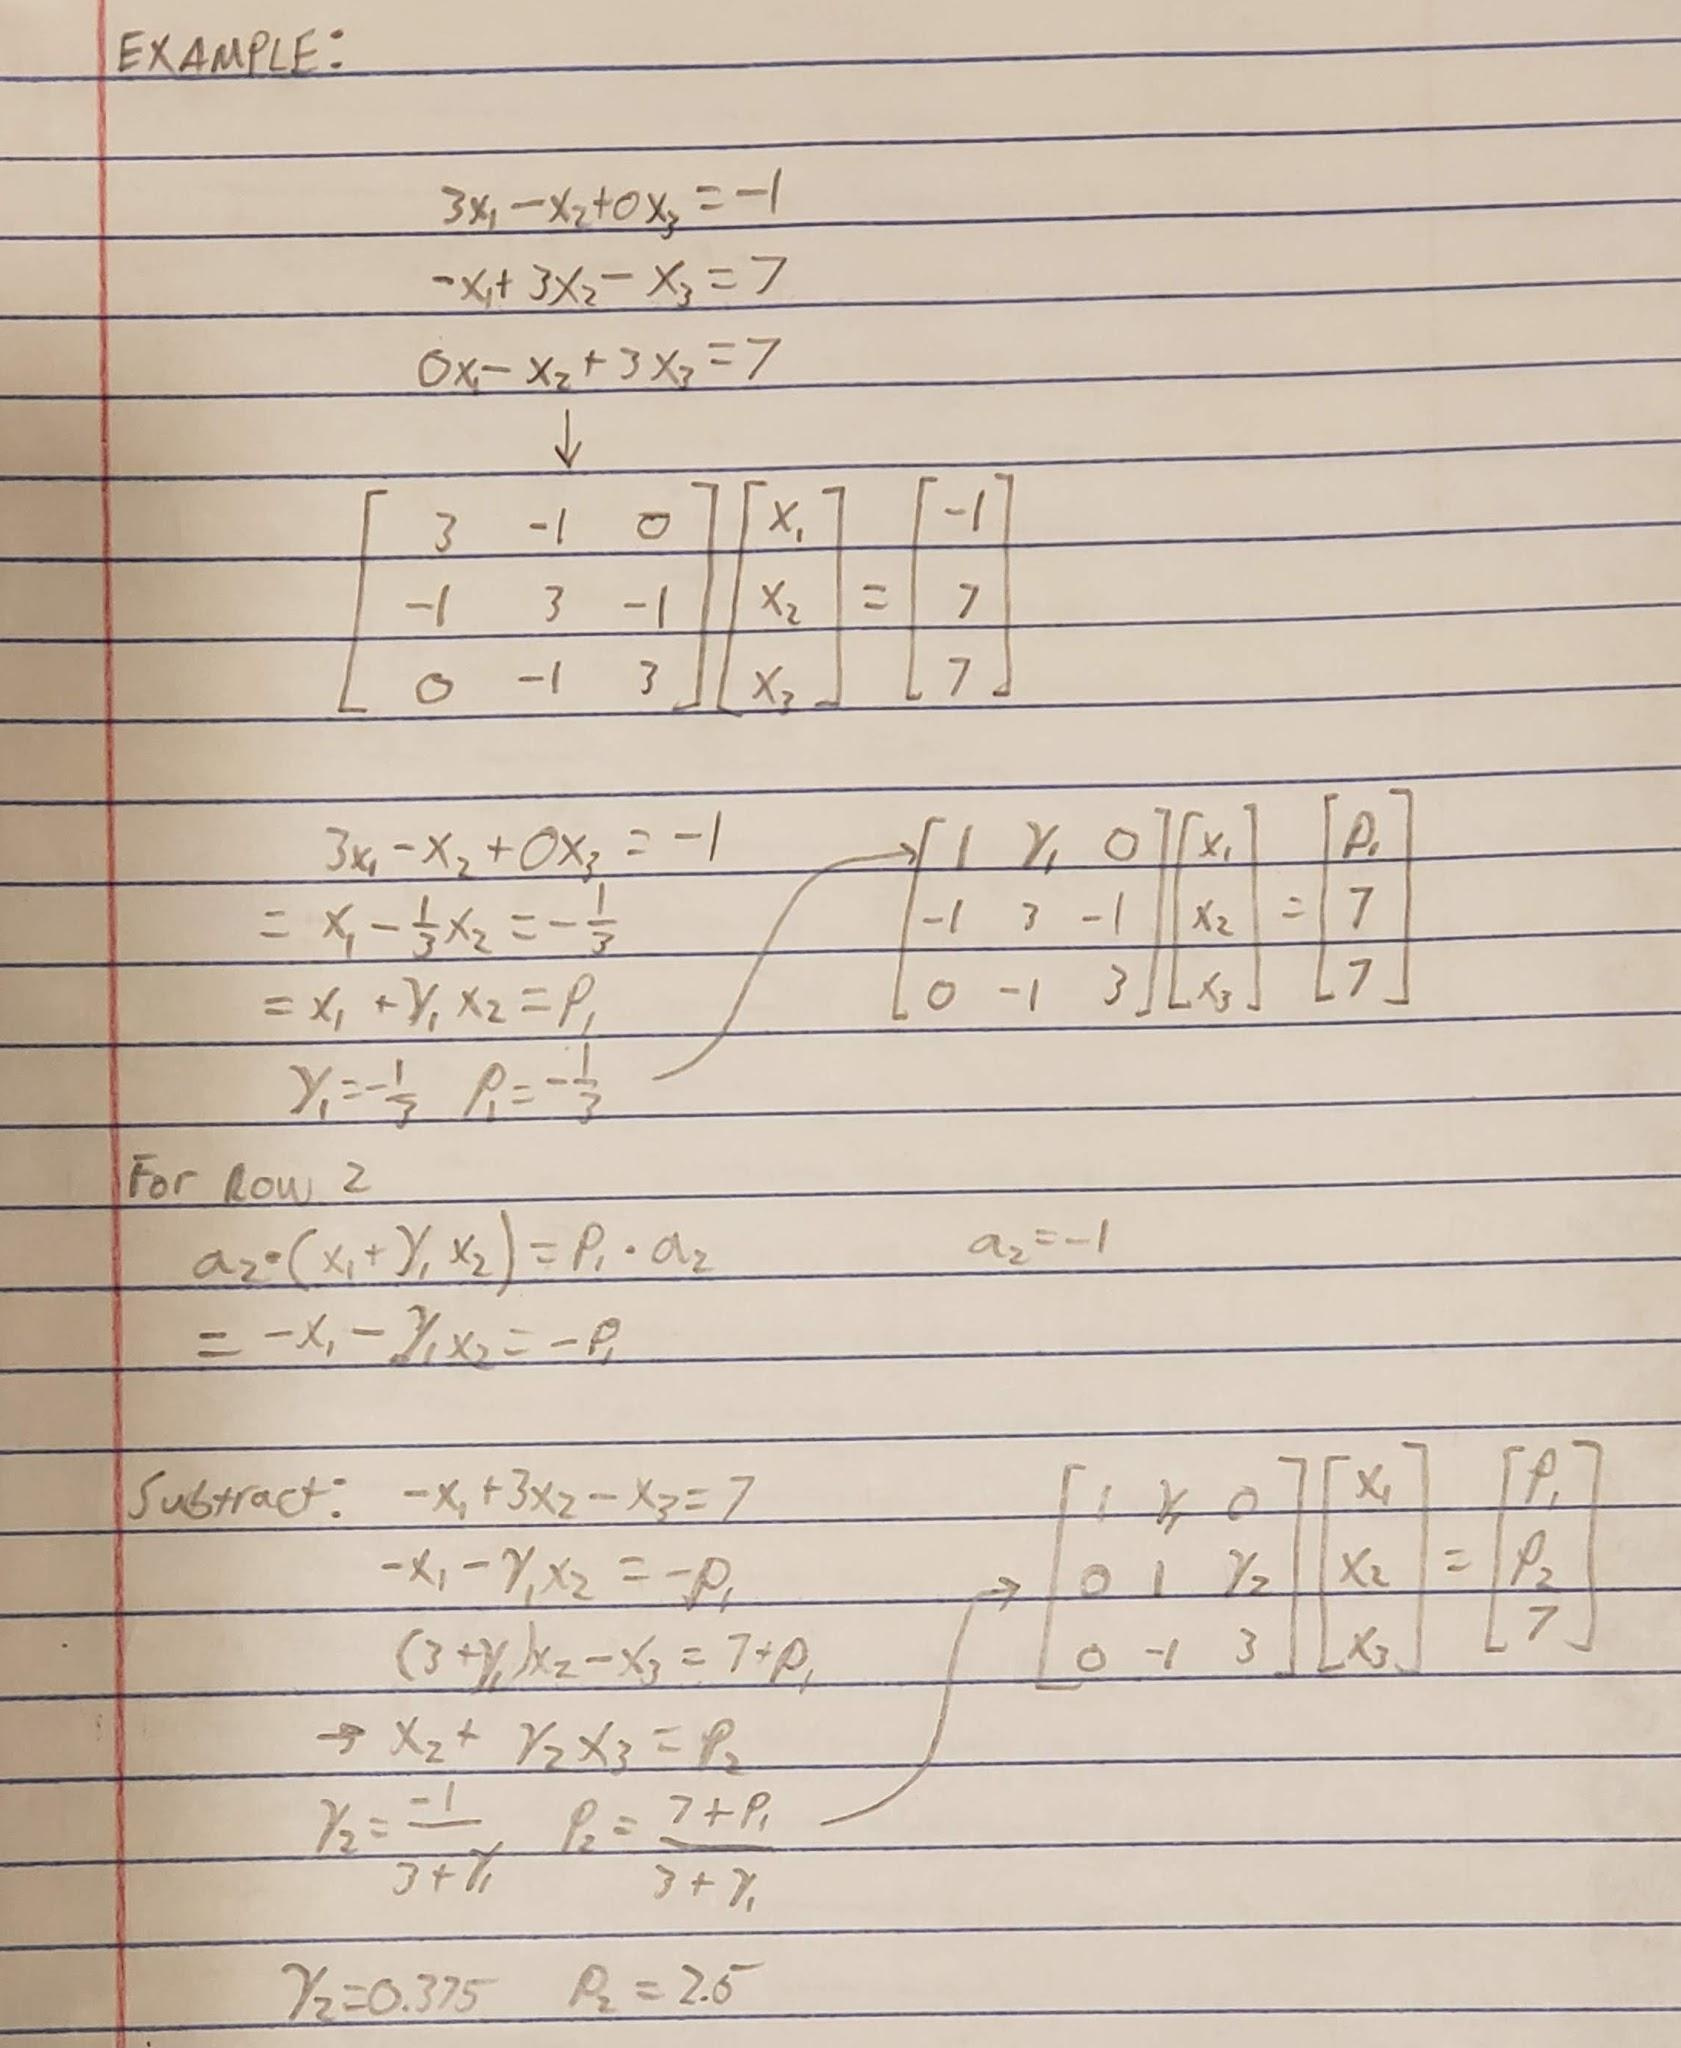 EXAMPLE:
3x₁-x₂+0x₃=-1
-x₁+3x₂-x₃=7
0x₁-x₂+3x₃=7
↓
[3 -1 0] [x₁] [-1]
[-1 3 -1] [x₂] = [7]
[0 -1 3] [x₃] [7]
3x₁-x₂+0x₃=-1
= x₁-1/3x₂=-1/3
= x₁+γ₁x₂=ρ₁
γ₁=-1/3 ρ₁=-1/3
→ [1 γ₁ 0] [x₁] [ρ₁]
[-1 3 -1] [x₂] = [7]
[0 -1 3] [x₃] [7]
For Row 2
a₂·(x₁+γ₁x₂)=ρ₁·a₂ a₂=-1
= -x₁-γ₁x₂=-ρ₁
Subtract: -x₁+3x₂-x₃=7
-x₁-γ₁x₂=-ρ₁
(3+γ₁)x₂-x₃=7+ρ₁
→ x₂+γ₂x₃=ρ₂
γ₂=-1/(3+γ₁) ρ₂=(7+ρ₁)/(3+γ₁)
→ [1 γ₁ 0] [x₁] [ρ₁]
[0 1 γ₂] [x₂] = [ρ₂]
[0 -1 3] [x₃] [7]
γ₂=0.375 ρ₂=2.5